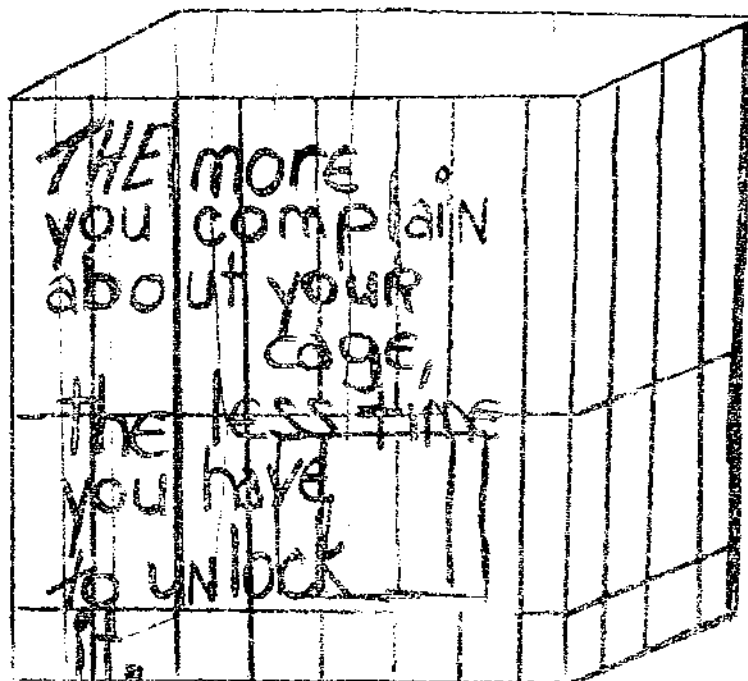 THE more
you complaiN
about youR
cage,
the less time
you have
to uNlock
it.